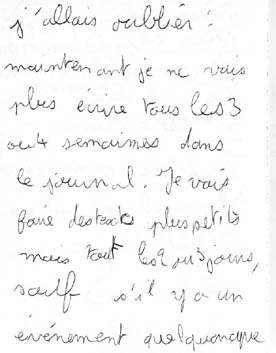 j'allais oublier :
maintenant je ne vais
plus écrire tous les 3
ou 4 semaimes dans
le journal. Je vais
faire des texts plus petits
mais tout les 2 ou 3 jours,
saulf s'il y a un
événement quelquonque